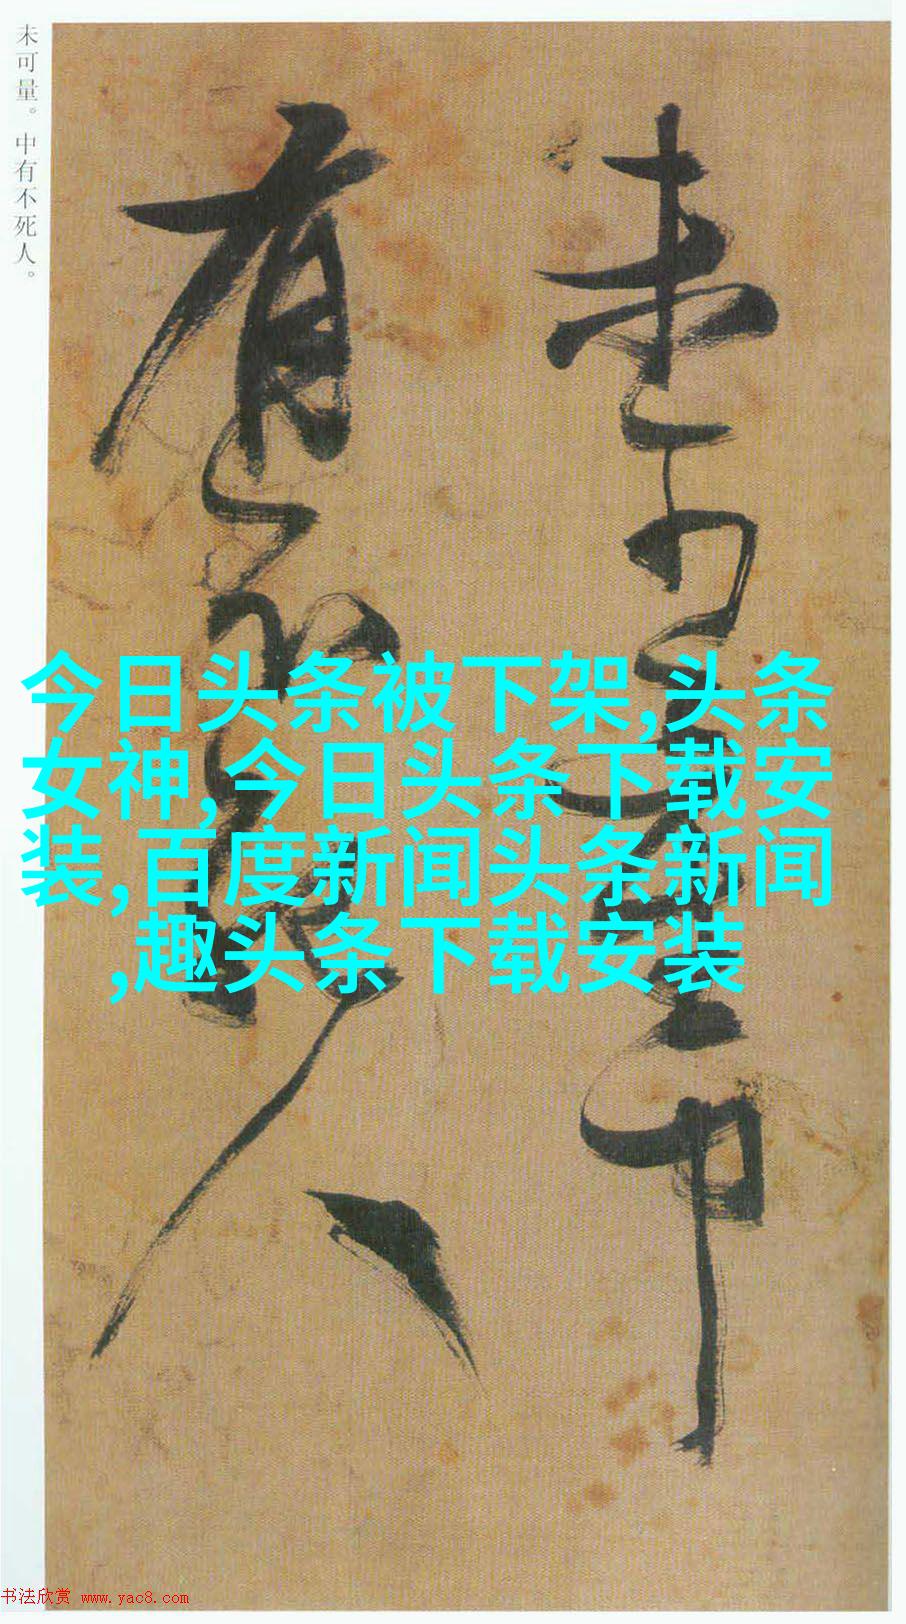 未可量。中有不死人。
未可量中
有不死人
今日头条被下架,头条
女神,今日头条下载安
装,百度新闻头条新闻
,趣头条下载安装
书法欣赏 www.yac8.com